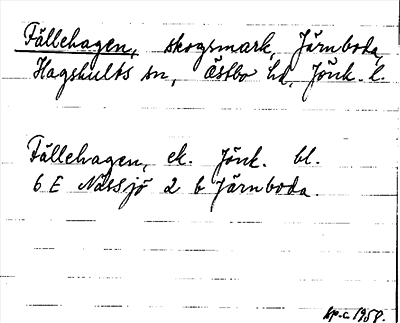 Fällehagen, skogsmark, Järnboda,
Hagshults sn, Östbo hd, Jönk. l.
Fällehagen, ek. Jönk. bl.
6 E Nässjö 2 b Järnboda.
1958.